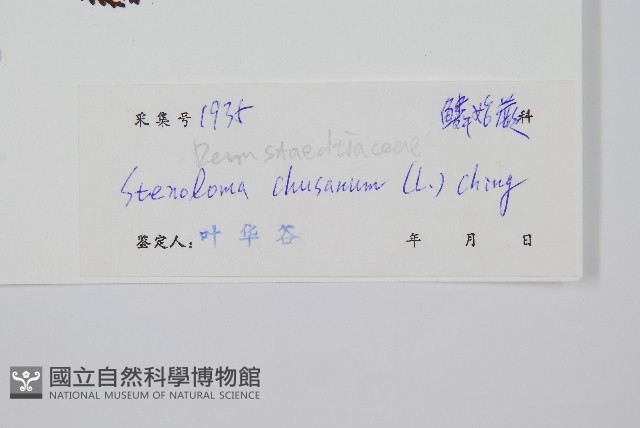 采集号 1935 鳞始蕨科
Dennstaedtiaceae
Stenoloma chusanum (L.) Ching
鉴定人: 叶华谷 年 月 日
國立自然科學博物館
NATIONAL MUSEUM OF NATURAL SCIENCE